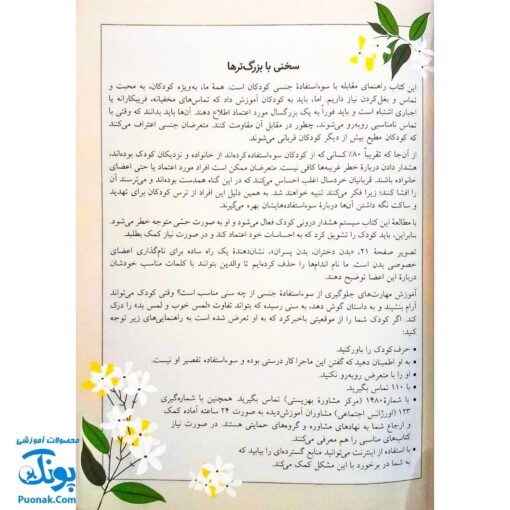 سخنی با بزرگ‌ترها
این کتاب راهنمای مقابله با سوءاستفادهٔ جنسی کودکان است. همهٔ ما، به‌ویژه کودکان، به محبت و
تماس و بغل‌کردن نیاز داریم. اما، باید به کودکان آموزش داد که تماس‌های مخفیانه، فریبکارانه یا
اجباری اشتباه است و باید فوراً به یک بزرگسال مورد اعتماد اطلاع دهند. آن‌ها باید بدانند که وقتی با
تماس نامناسبی روبه‌رو می‌شوند، چطور در مقابل آن مقاومت کنند. متعرضان جنسی اعتراف می‌کنند
که کودکان مطیع بیش از دیگر کودکان قربانی می‌شوند.
از آن‌جا که تقریباً ۸۰٪ کسانی که از کودکان سوءاستفاده کرده‌اند از خانواده و نزدیکان کودک بوده‌اند،
هشدار دادن دربارهٔ خطر غریبه‌ها کافی نیست. متعرضان ممکن است افراد مورد اعتماد یا حتی اعضای
خانواده باشند. قربانیان خردسال اغلب احساس می‌کنند که در این گناه همدست بوده‌اند و می‌ترسند آن
را افشا کنند؛ زیرا فکر می‌کنند تنبیه خواهند شد. به همین دلیل این افراد از ترس کودکان برای تهدید
و ساکت نگه داشتن آن‌ها دربارهٔ سوءاستفاده‌هایشان بهره می‌گیرند.
با مطالعهٔ این کتاب سیستم هشدار درونی کودک فعال می‌شود و او به صورت حسّی متوجه خطر می‌شود.
بنابراین، باید کودک را تشویق کرد که به احساسات خود اعتماد کند و در صورت نیاز کمک بطلبد.
تصویر صفحهٔ ۲۱، «بدن دختران، بدن پسران»، نشان‌دهندهٔ یک راه ساده برای نام‌گذاری اعضای
خصوصی بدن است. ما نام اندام‌ها را حذف کرده‌ایم تا والدین بتوانند با کلمات مناسب خودشان
دربارهٔ این اعضا توضیح دهند.
آموزش مهارت‌های جلوگیری از سوءاستفادهٔ جنسی از چه سنی مناسب است؟ وقتی کودک می‌تواند
آرام بنشیند و به داستان گوش دهد، به سنی رسیده که بتواند تفاوت «لمس خوب و لمس بد» را درک
کند. اگر کودک شما را از موقعیتی باخبر کرد که به او تعرض شده است به راهنمایی‌های زیر توجه
کنید:
• حرف کودک را باور کنید.
• به او اطمینان دهید که گفتن این ماجرا کار درستی بوده و سوءاستفاده تقصیر او نیست.
• او را با متعرض روبه‌رو نکنید.
• با ۱۱۰ تماس بگیرید.
• با شمارهٔ ۱۴۸۰ (مرکز مشاورهٔ بهزیستی) تماس بگیرید. همچنین با شماره‌گیری
۱۲۳ (اورژانس اجتماعی) مشاوران آموزش‌دیده به صورت ۲۴ ساعته آماده کمک
و ارجاع شما به نهادهای مشاوره و گروه‌های حمایتی هستند. در صورت نیاز
کتاب‌های مناسبی را هم معرفی می‌کنند.
• با استفاده از اینترنت می‌توانید منابع گسترده‌ای را بیابید که
به شما در برخورد با این مشکل کمک می‌کند.
محصولات آموزشی
پونک
Puonak.Com